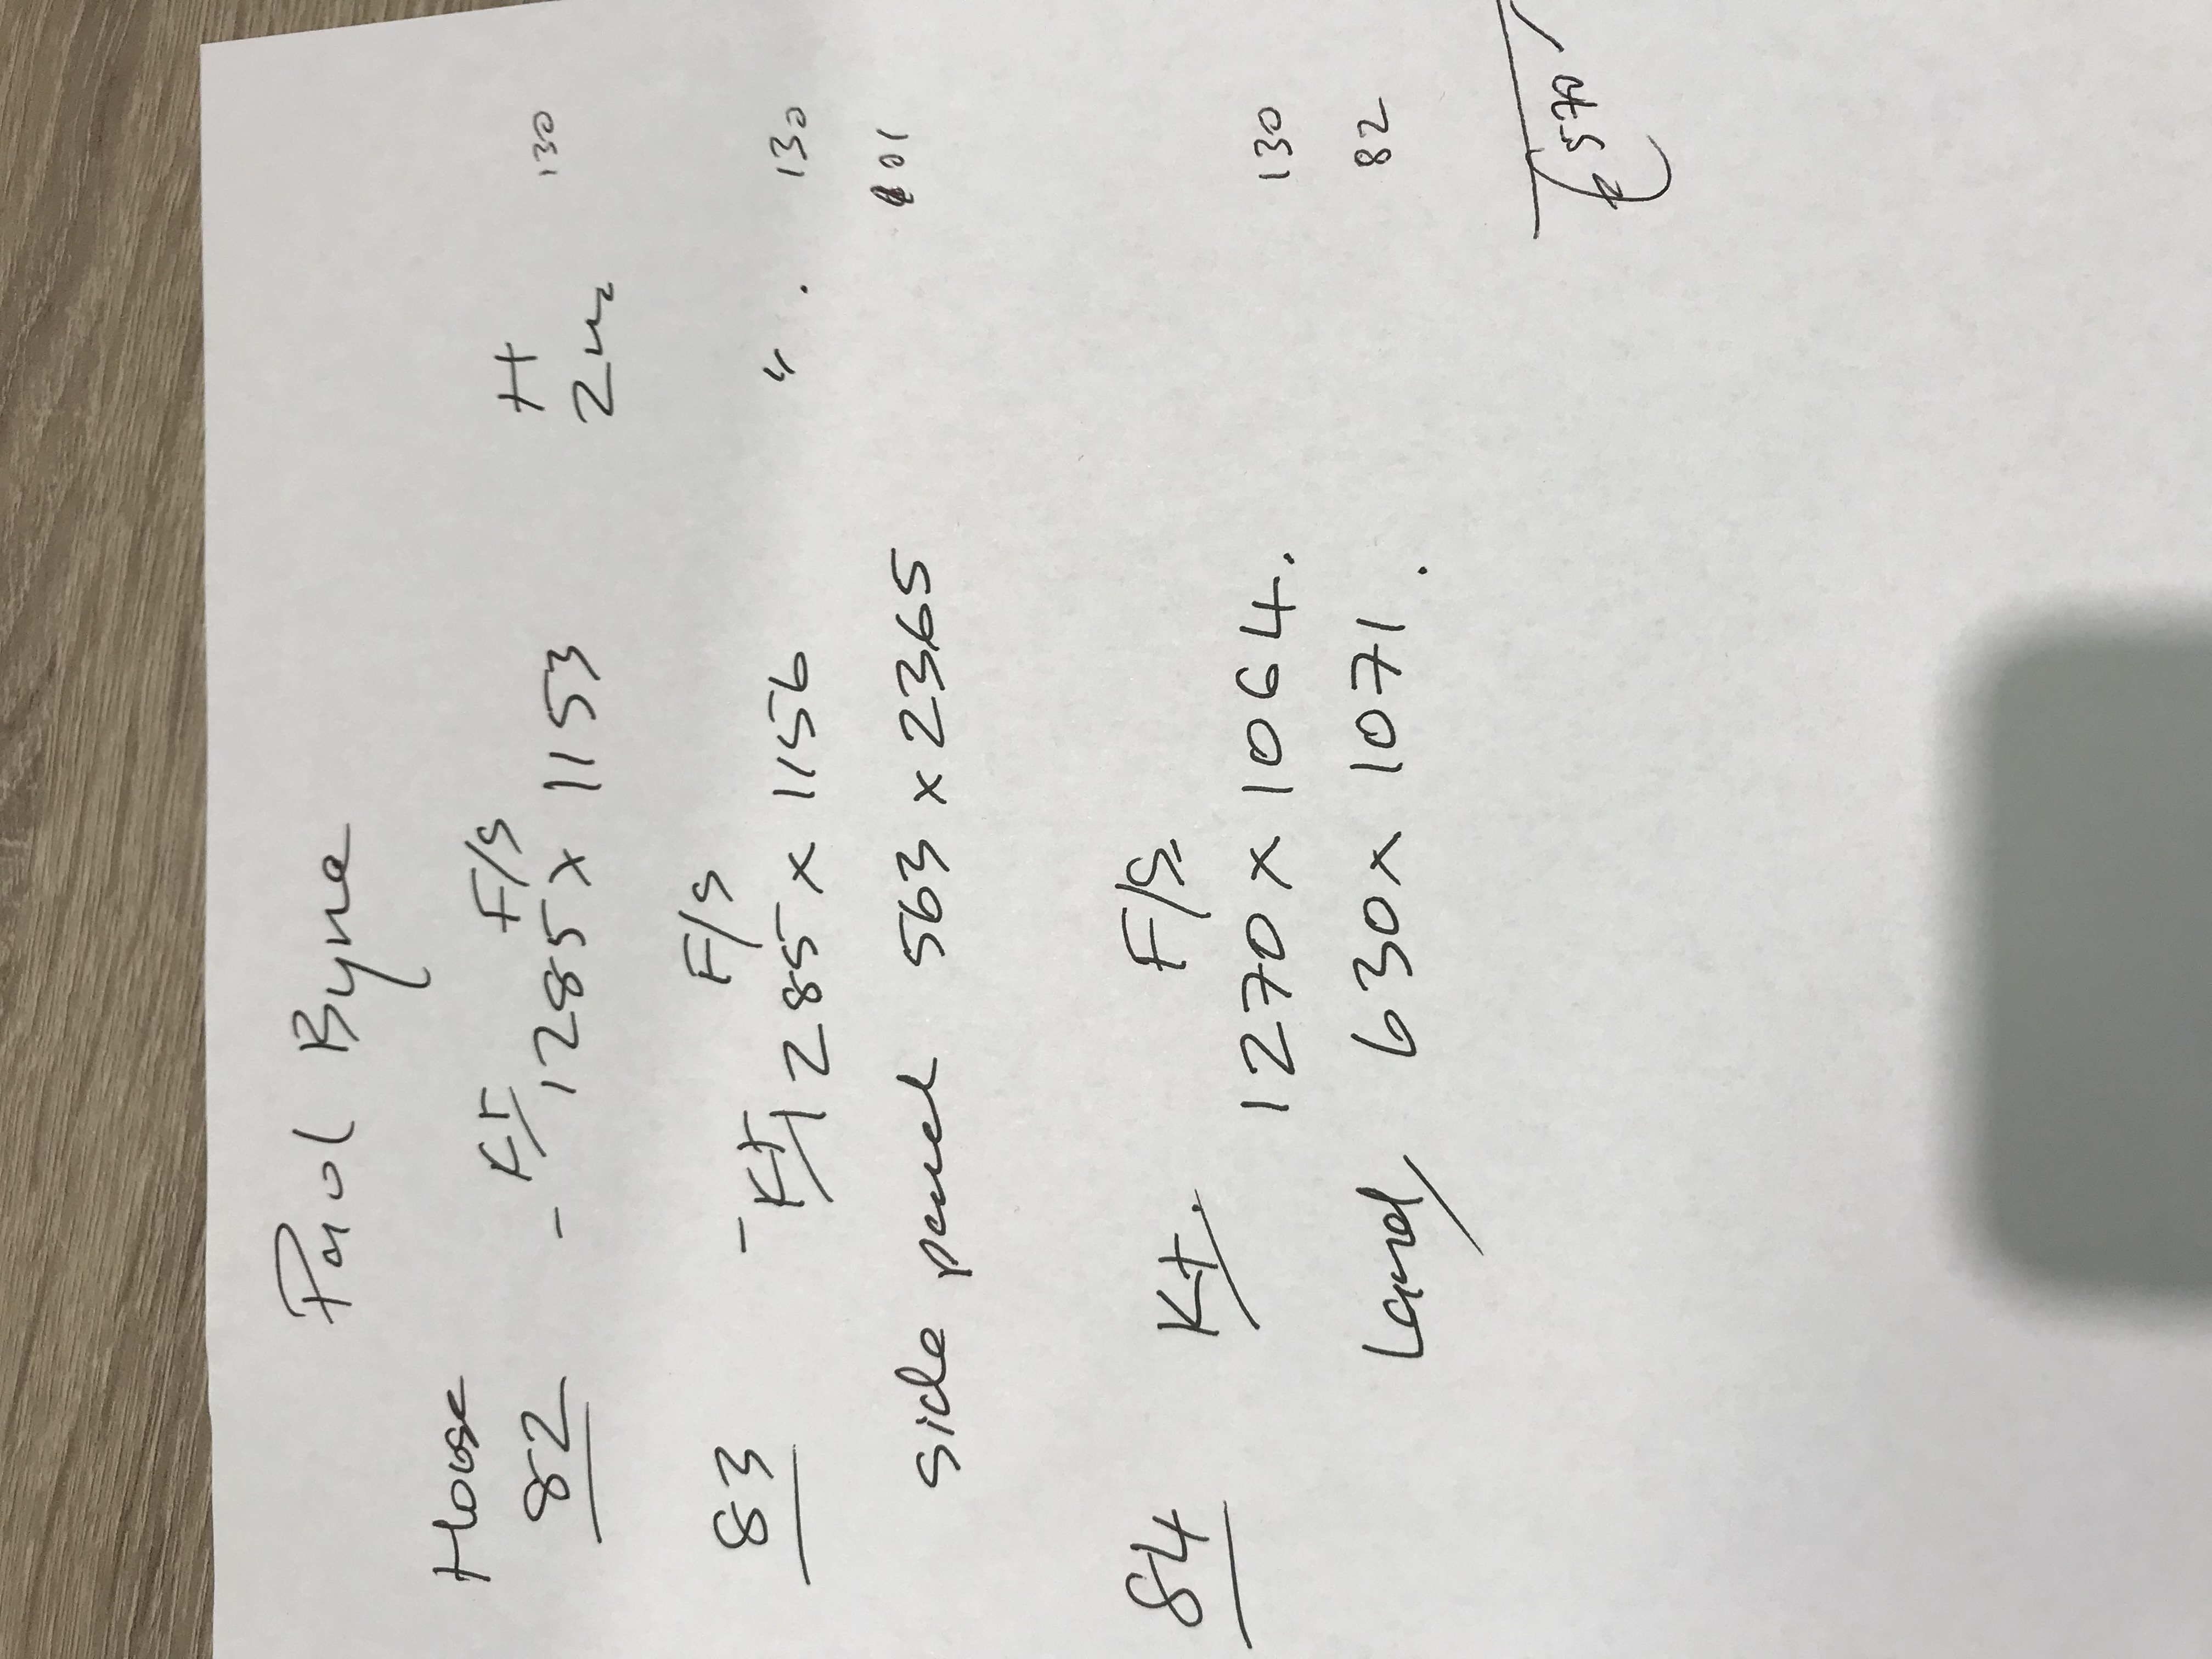 Paul Byrne
House
82 - Kt F/s H
1285 x 1153 2 130
83 - Kt F/s
1285 x 1156 " . 130
side panel 563 x 2365 101
84 Kt. F/s.
1270 x 1064. 130
Land 630 x 1071. 82
£ 574